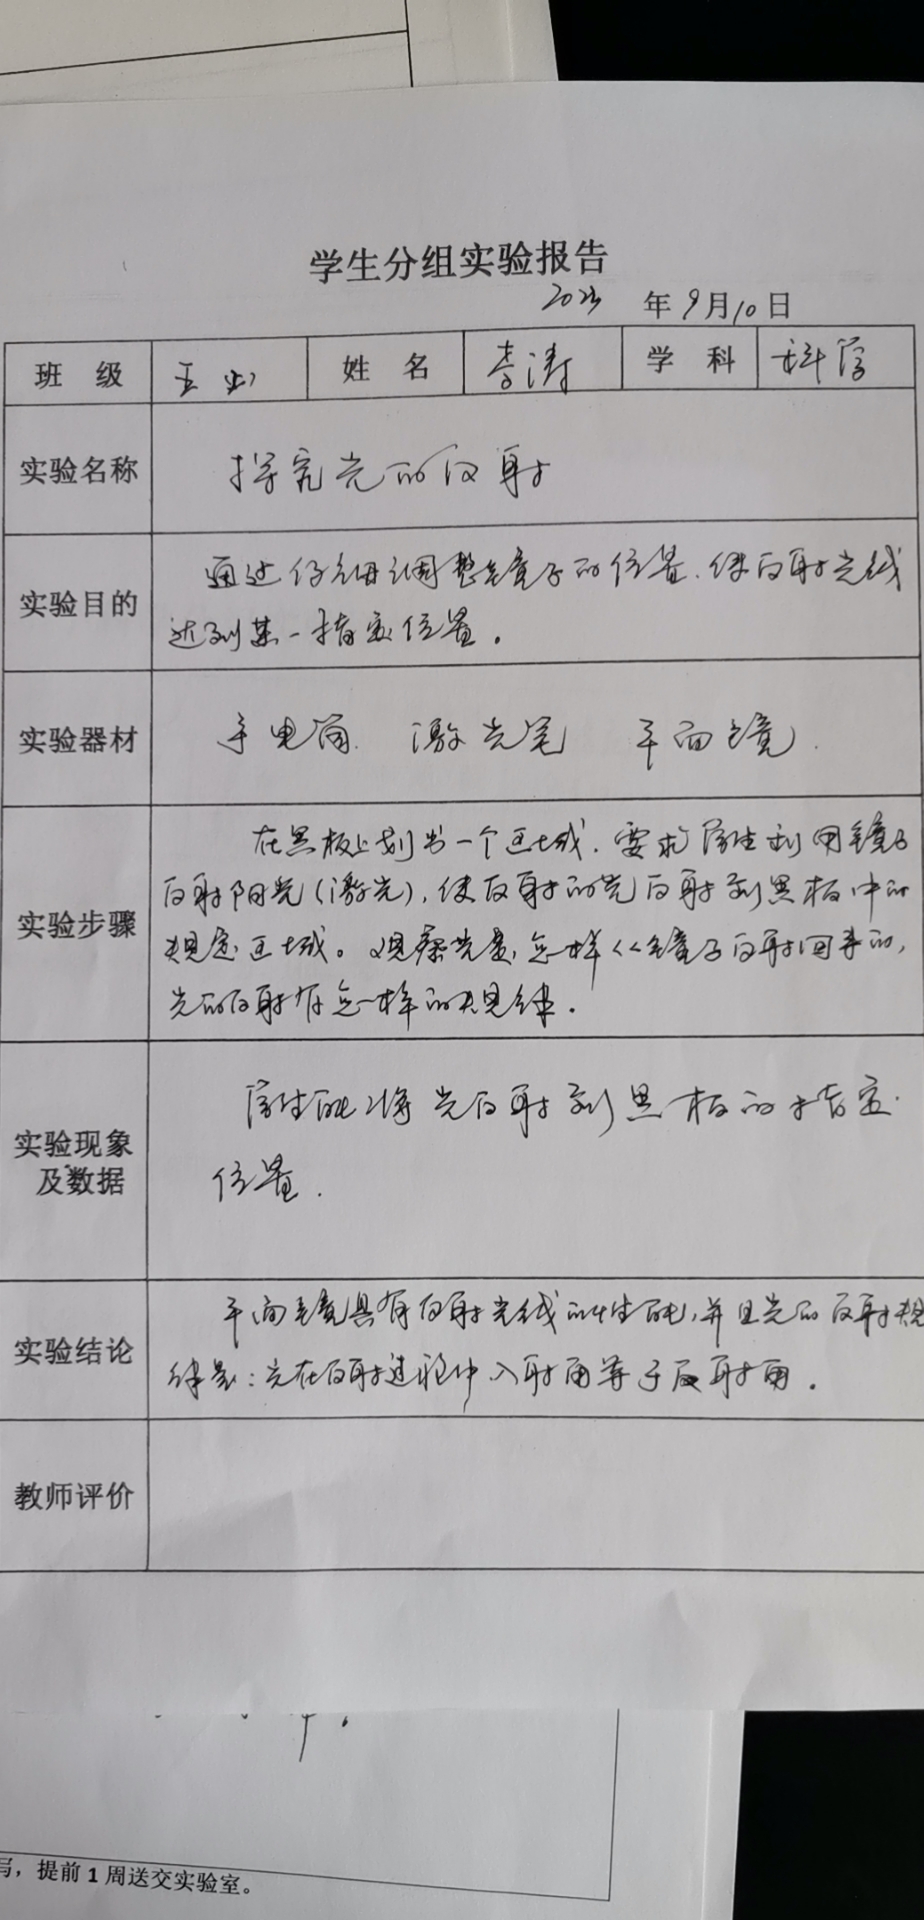 学生分组实验报告
2023 年 9 月 10 日
班 级 五 姓 名 李涛 学 科 科学
实验名称 探究光的反射
实验目的 通过仔细调整镜子的位置,使反射光线
达到某一指定位置。
实验器材 手电筒. 激光笔 平面镜.
在黑板上划出一个区域,要求学生利用镜子
反射阳光(激光),使反射的光反射到黑板中的
实验步骤 规定区域。观察光是怎样从镜子反射回来的,
光的反射有怎样的规律.
学生能将光反射到黑板的指定
实验现象
及数据 位置.
平面镜具有反射光线的性能,并且光的反射规
实验结论 律是:光在反射过程中入射角等于反射角.
教师评价
写,提前1周送交实验室。